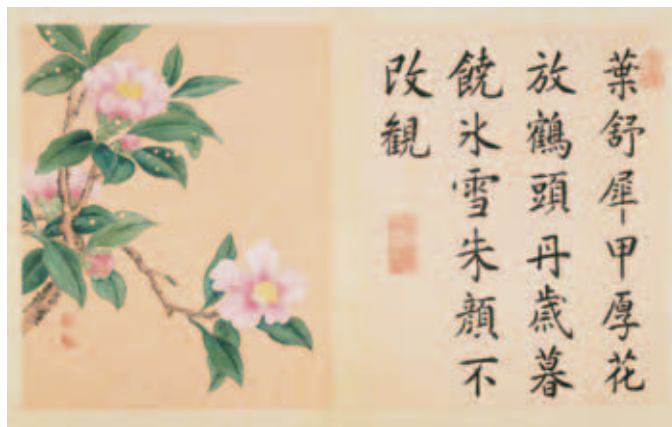 葉舒犀甲厚花
放鶴頭丹歳暮
饒氷雪朱顔不
改観